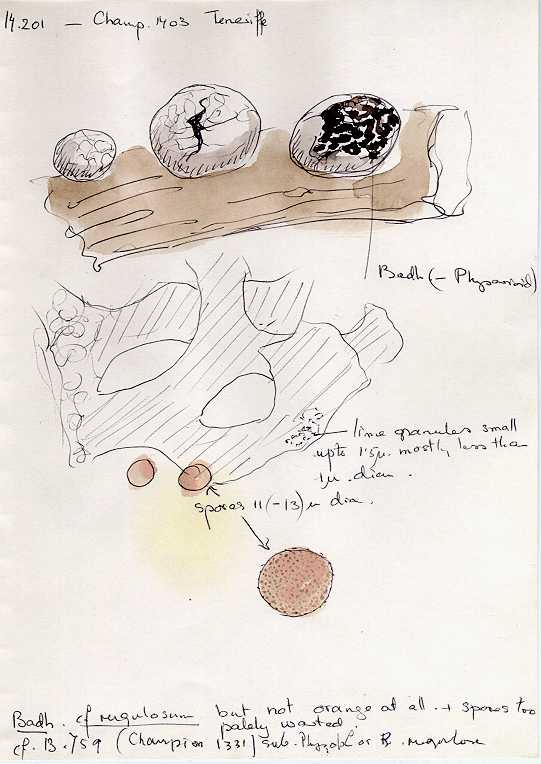 14.201 — Champ. 1403 Tenesiffe
Badh (– Physaroid)
lime granules small
upto 1.5µ. mostly less than
1µ. diam.
spores 11(–13)µ dia.
Badh. cf rugulosum but not orange at all. + spores too
palely warted.
cf. B. 759 (Champion 1331) sub. or B. rugulosa